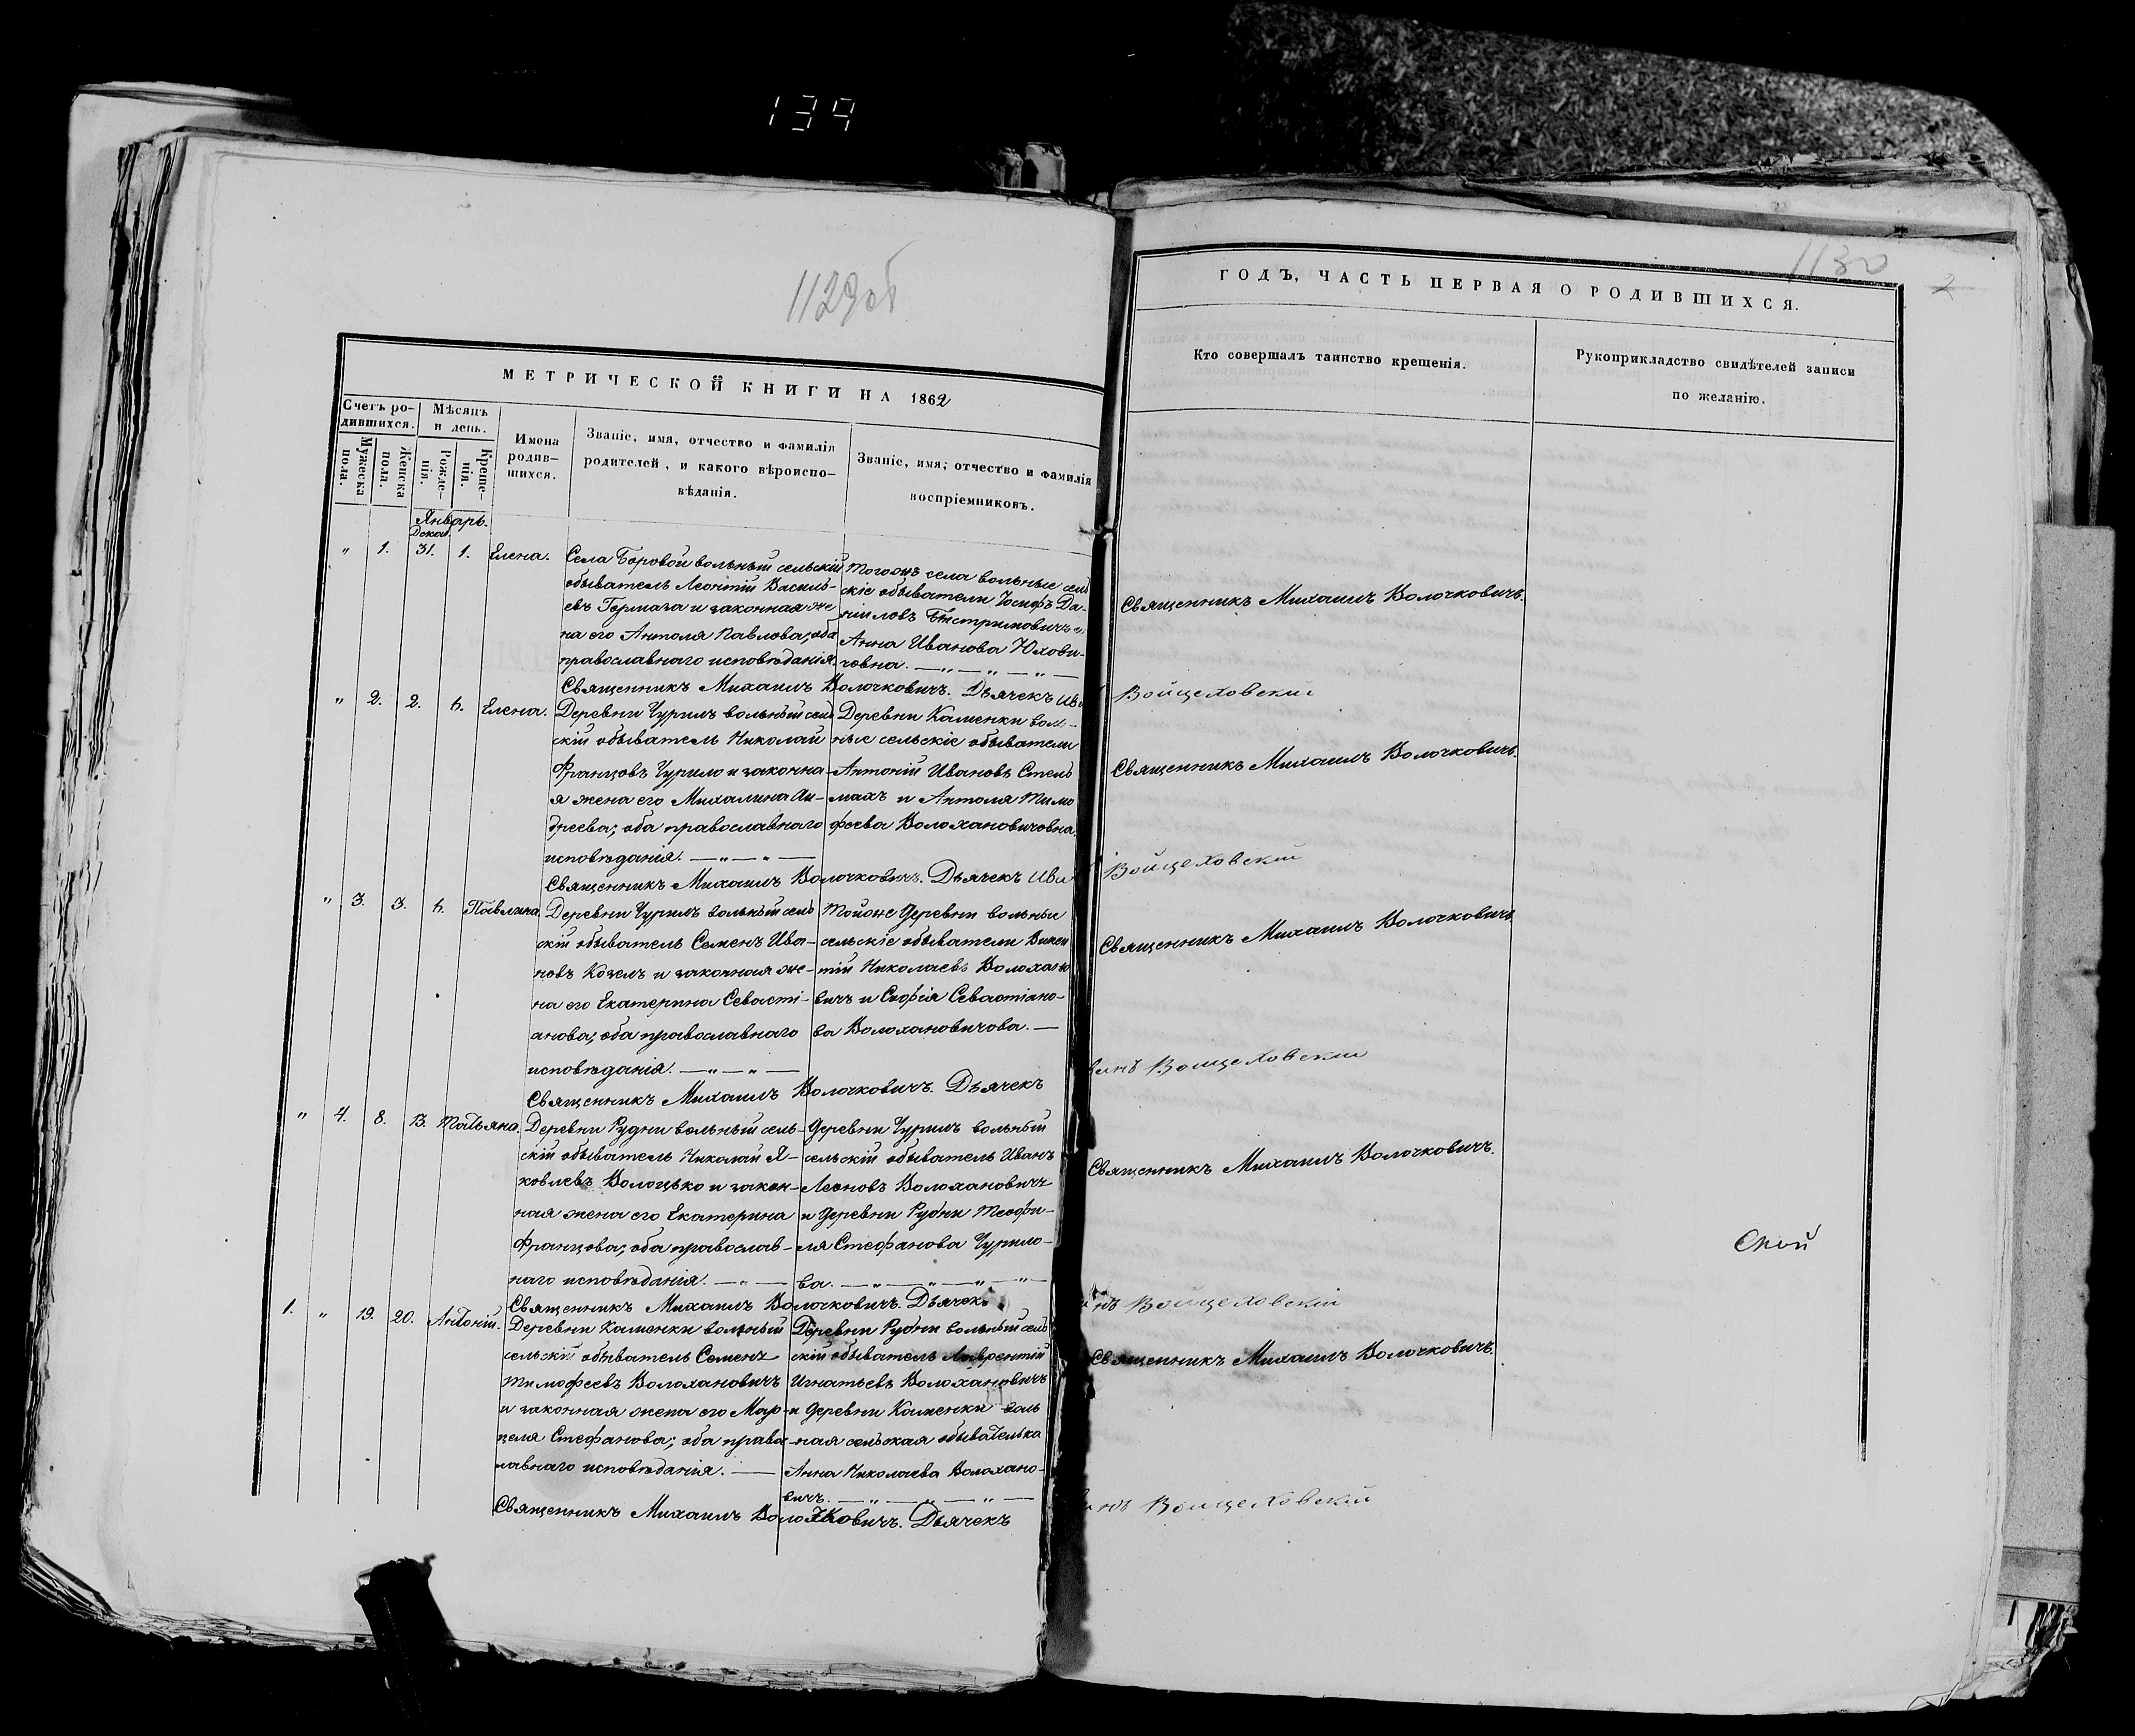 139
1129об
МЕТРИЧЕСКОЙ КНИГИ НА 1862
Счетъ ро-
дившихся.
Мужеска
пола.
Женска
пола.
Мѣсяцъ
и день.
Рожде-
нія.
Креще-
нія.
Имена
родив-
шихся.
Званіе, имя, отчество и фамилія
родителей, и какого вѣроиспо-
вѣданія.
Званіе, имя, отчество и фамилія
воспріемниковъ.
Январь.
Декаб.
" 1. 31. 1. Елена.
Села Боровой вольный сельскій
обыватель Леонтій Василь-
евъ Гормаза и законная же
на его Антоля Павлова; оба
православнаго исповѣданія.
Тогожъ села вольные сель
скіе обыватели Іосифъ Да-
ніиловъ Быстримовичъ и
Анна Иванова Юхови-
човна. — " — " — " —
Священникъ Михаилъ Волочковичъ. Дьячекъ Ив
" 2. 2. 6. Елена.
Деревни Чурилъ вольный сель
скій обыватель Николай
Францовъ Чурило и законна-
я жена его Михалина Ан-
дреева; оба православнаго
исповѣданія. — " — " —
Деревни Каменки воль-
ные сельскіе обыватели
Антоній Ивановъ Стель
махъ и Антоля Тимо
феева Волохановичовна.
Священникъ Михаилъ Волочковичъ. Дьячекъ Ива
" 3. 3. 6. Павлина.
Деревни Чурилъ вольный сель
скій обыватель Семенъ Ива-
новъ Козелъ и законная же-
на его Екатерина Севасті-
анова; оба православнаго
исповѣданія. — " — " —
Тойоже деревни вольные
сельскіе обыватели Викен
тій Николаевъ Волохано
вичъ и Софія Севастіано-
ва Волохановичова. —
Священникъ Михаилъ Волочковичъ. Дьячекъ
" 4. 8. 13. Татьяна.
Деревни Рудни вольный сель-
скій обыватель Николай Я-
ковлевъ Волоцько и закон-
ная жена его Екатерина
Францова; оба православ-
наго исповѣданія. — " —
Деревни Чурилъ вольный
сельскій обыватель Иванъ
Леоновъ Волохановичъ
и деревни Рудни Теофи-
ля Стефанова Чурило-
ва. — " — " — " — "
Священникъ Михаилъ Волочковичъ. Дьячекъ
1. " 19. 20. Антоній.
Деревни Каменки вольный
сельскій обыватель Семенъ
Тимофеевъ Волохановичъ
и законная жена его Мар-
целя Стефанова; оба право
славнаго исповѣданія. —
Деревни Рудни вольный сель
скій обыватель Лаврентій
Игнатьевъ Волохановичъ
и деревни Каменки воль
ная сельская обывателька
Анна Николаева Волохано-
вичъ. — " — " — " —
Священникъ Михаилъ Волочковичъ. Дьячекъ
1130
2
ГОДЪ, ЧАСТЬ ПЕРВАЯ О РОДИВШИХСЯ.
Кто совершалъ таинство крещенія.
Рукоприкладство свидѣтелей записи
по желанію.
Священникъ Михаилъ Волочковичъ.
Войцеховскій
Священникъ Михаилъ Волочковичъ.
Войцеховскій
Священникъ Михаилъ Волочковичъ
Войцеховскій
Священникъ Михаилъ Волочковичъ.
нъ Войцеховскій
Священникъ Михаилъ Волочковичъ.
нъ Войцеховскій